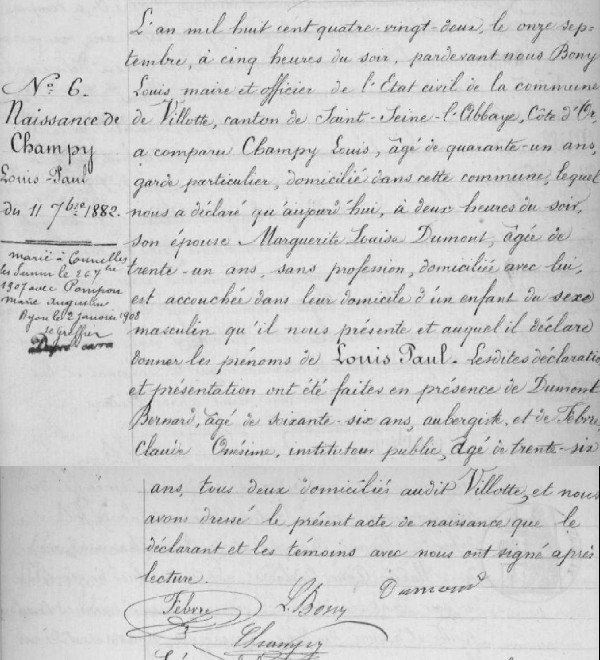 L'an mil huit cent quatre-vingt-deux, le onze sep-
tembre, à cinq heures du soir, pardevant nous Bony
Louis maire et officier de l'Etat civil de la commune
de Villotte, canton de Saint-Seine-l'Abbaye, Côte d'Or,
a comparu Champy Louis, âgé de quarante-un ans,
garde particulier, domicilié dans cette commune, lequel
nous a déclaré qu'aujourd'hui, à deux heures du soir,
son épouse Marguerite Louise Dumont, âgée de
trente-un ans, sans profession, domiciliée avec lui,
est accouchée dans leur domicile d'un enfant du sexe
masculin qu'il nous présente et auquel il déclare
donner les prénoms de Louis Paul. Lesdites déclaration
et présentation ont été faites en présence de Dumont
Bernard, âgé de soixante-six ans, aubergiste, et de Febvre
Onésime, instituteur public, âgé de trente-six
ans, tous deux domiciliés audit Villotte, et nous
avons dressé le présent acte de naissance que le
déclarant et les témoins avec nous ont signé après
lecture.
Febvre L. Bony Dumont
Champy
No. 6.
Naissance de
Champy
Louis Paul
du 11 7bre 1882.
marié à Courcelles
les Semur le 26 7bre
1907 avec Pompon
Marie Augustine
Dijon le 2 Janvier 1908
le greffier